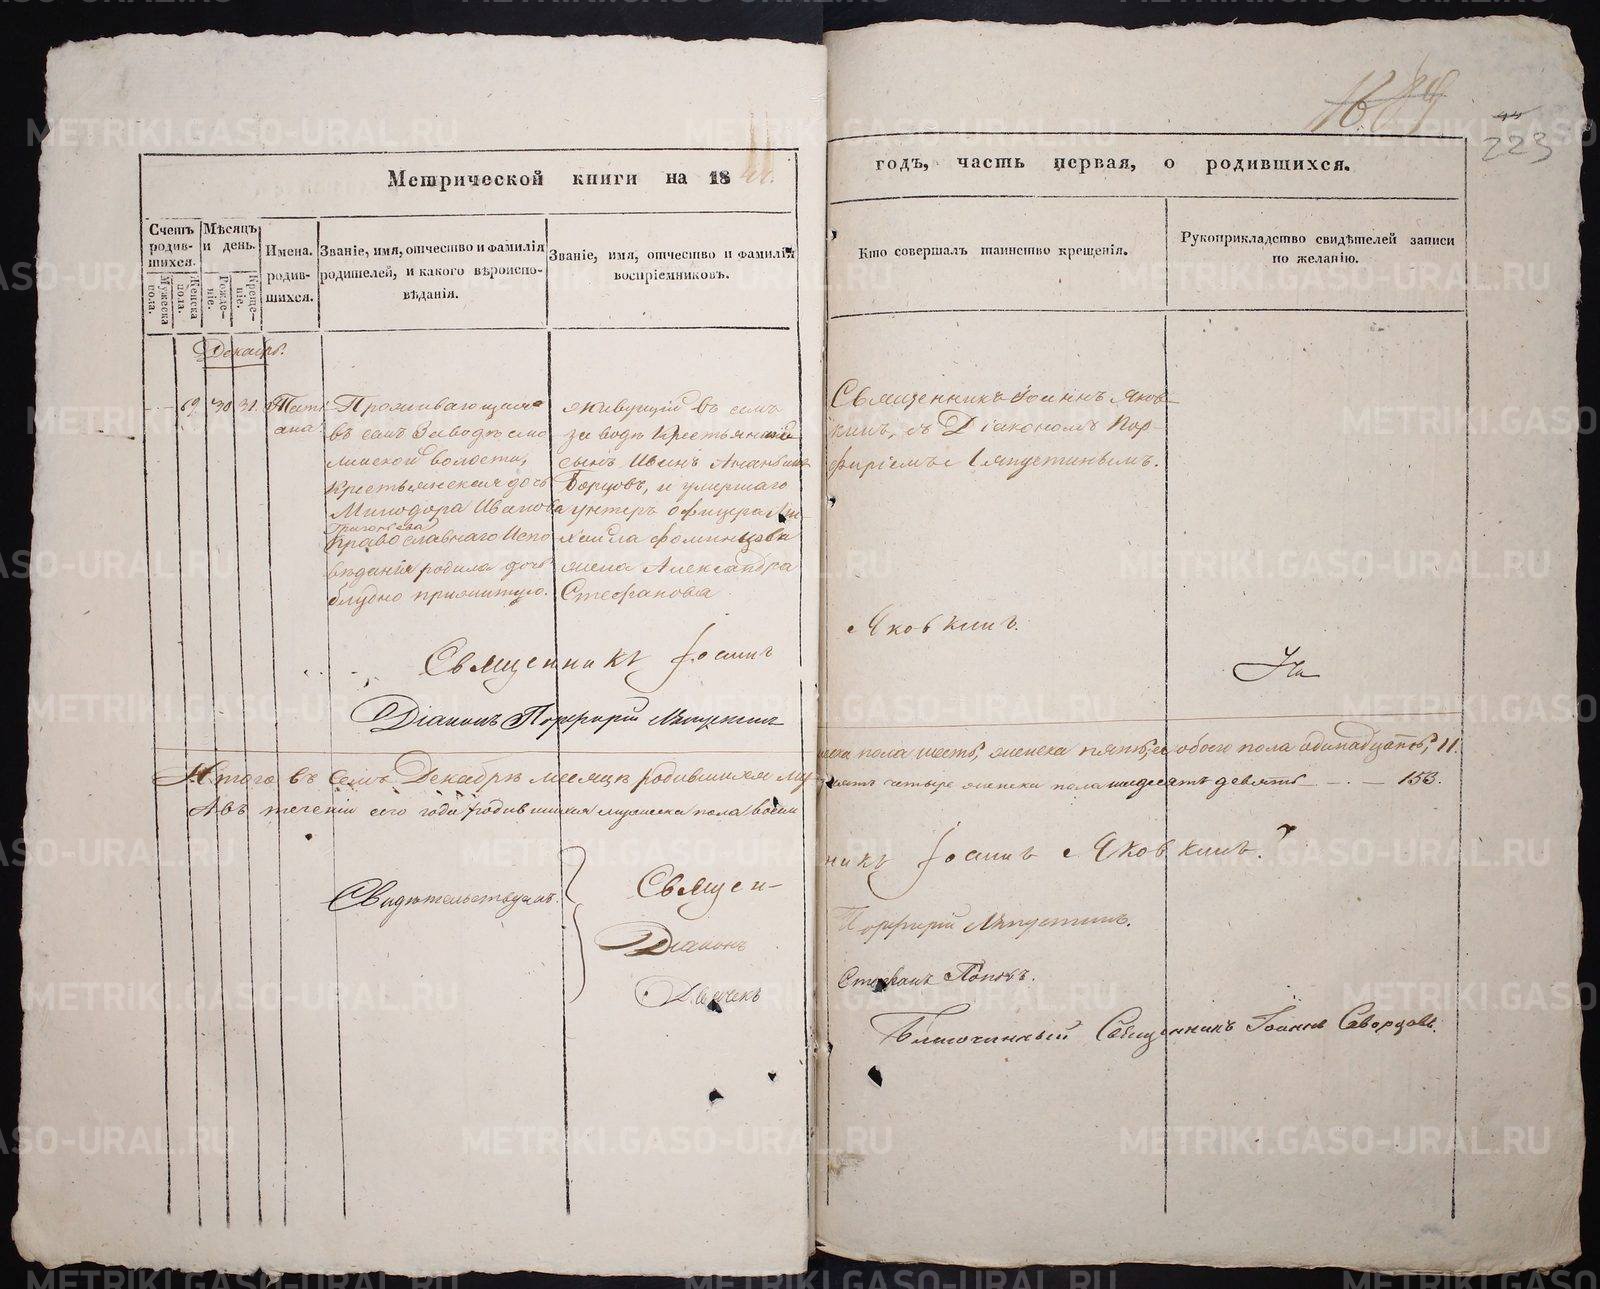 Метрической книги на 18
годъ, часть первая, о родившихся.
223
Счетъ родив-шихся.
Мужеска пола.
Женска пола.
Мѣсяцъ и день.
Рожде-ніе.
Креще-ніе.
Имена родив-шихся.
Званіе, имя, отчество и фамилія родителей, и какого вѣроиспо-вѣданія.
Званіе, имя, отчество и фамилія воспріемниковъ.
Кто совершалъ таинство крещенія.
Рукоприкладство свидѣтелей записи по желанію.
Декабрь.
69. 30 31. Тати-
ана.
Проживающая
въ семъ Заводѣ
волости,
Крестьянская дочь
Иванова
Григорьева
Православнаго Испо
вѣданія родила дочь
блудно прижитую.
живущій въ семъ
заводѣ Крестьянскій
сынъ Иванъ
Борцовъ, и умершаго
унтеръ офицера Ми
хаила
жена Александра
Стефанова
Священникъ Іоаннъ Яков
кинъ, съ Діакономъ Пор-
фиріемъ Ляпустинымъ.
Священникъ Іоаннъ
Яковкинъ.
Діаконъ Порфирій Ляпустинъ
Итого въ семъ Декабрѣ месяцѣ родившихся му
жеска пола шесть, женска пять, а обоего пола одинадцать, 11.
А въ теченіи сего года родившихся мужеска пола восемь
десятъ четыре женска пола шесдесятъ девять — 153.
Свидѣтельствуемъ.
Священ-
никъ Іоаннъ Яковкинъ.
Діаконъ
Порфирій Ляпустинъ.
Дьячекъ
Стефанъ Поповъ.
Благочинный Священникъ Іоаннъ
METRIKI.GASO-URAL.RU